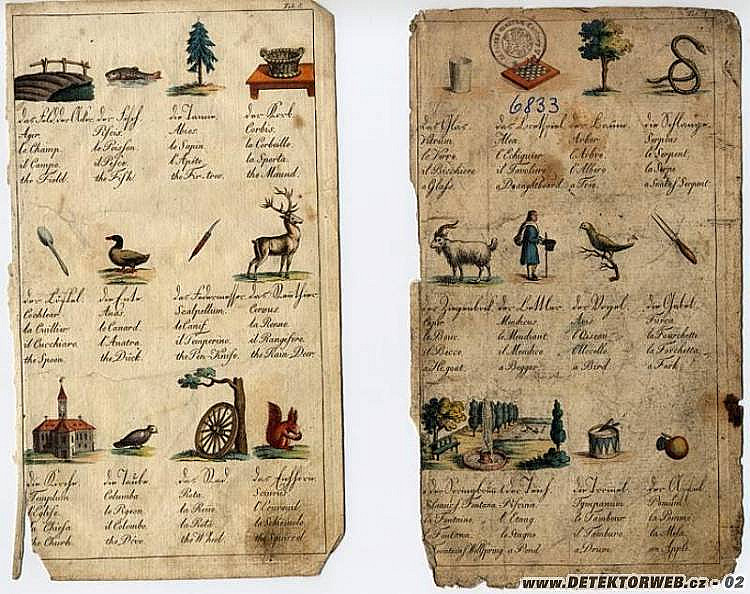 Tab. 8.
das Feld, der Acker.
Ager.
le Champ.
il Campo.
the Field.
der Fisch.
Piscis.
le Poisson.
il Pesce.
the Fish.
die Tanne.
Abies.
le Sapin.
l'Apete
the Fir-tree.
der Korb.
Corbis.
la Corbeille.
la Sporta.
the Maund.
der Löffel.
Cochlear.
la Cuillier.
il Cucchiaro.
the Spoon.
die Ente.
Anas.
le Canard.
l'Anatra.
the Duck.
das Federmesser.
Scalpellum.
le Canif.
il Temperino.
the Pen-Knife.
das Rennthier.
Cervus.
la Renne.
il Rangifero.
the Rain-Deer.
die Kirche.
Templum
l'Eglise.
la Chiesa
the Church.
die Taube.
Columba
le Pigeon.
il Colombo.
the Dove.
das Rad.
Rota.
la Roue.
la Rota.
the Wheel.
das Eichhorn.
Sciurus
l'Ecureuil.
lo Schiriuolo.
the Squirrel.
6833
das Glas.
Vitrum.
le Verre.
il Bicchiere
a Glass.
das Bretspiel.
Alea.
l'Echiquier.
il Tavoliere.
a Draughtboard.
der Baum.
Arbor.
l'Arbre.
l'Albero.
a Tree.
die Schlange.
Serpens.
le Serpent.
la Serpe.
a Snake, Serpent.
der Ziegenbock.
Caper.
le Bouc.
il Becco.
a He-goat.
der Bettler.
Mendicus.
le Mendiant.
il Mendico.
a Beggar.
der Vogel.
Avis.
l'Oiseau.
l'Uccello.
a Bird.
die Gabel.
Furca.
la Fourchette.
la Forchetta.
a Fork.
der Springbrunn
Fontana
la Fontaine.
Fontana.
Fountain, Wellspring
der Teich.
Piscina.
l'Etang.
lo Stagno.
a Pond.
die Tromel.
Tympanum.
le Tambour.
il Tamburo.
a Drum.
der Apfel.
Pomum.
la Pomme.
la Mela.
an Apple.
www.DETEKTORWEB.cz - 02